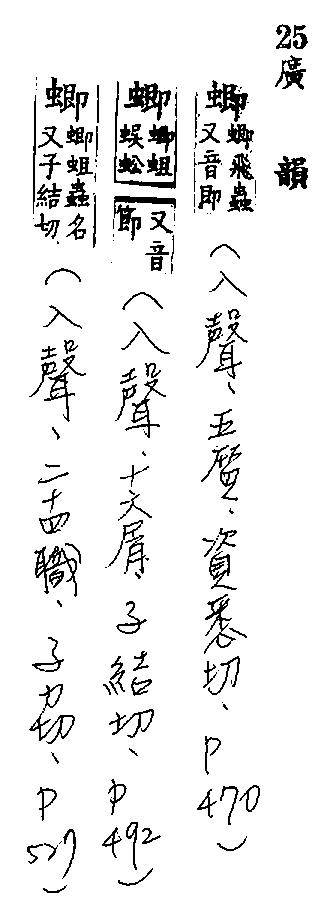 25廣韻
蝍 蝍飛蟲又音即(入聲、五質、資悉切、P470)
蝍 蝍蛆蜈蚣又音節(入聲、十六屑、子結切、P492)
蝍 蝍蛆蟲名又子結切(入聲、二十四職、子力切、P527)